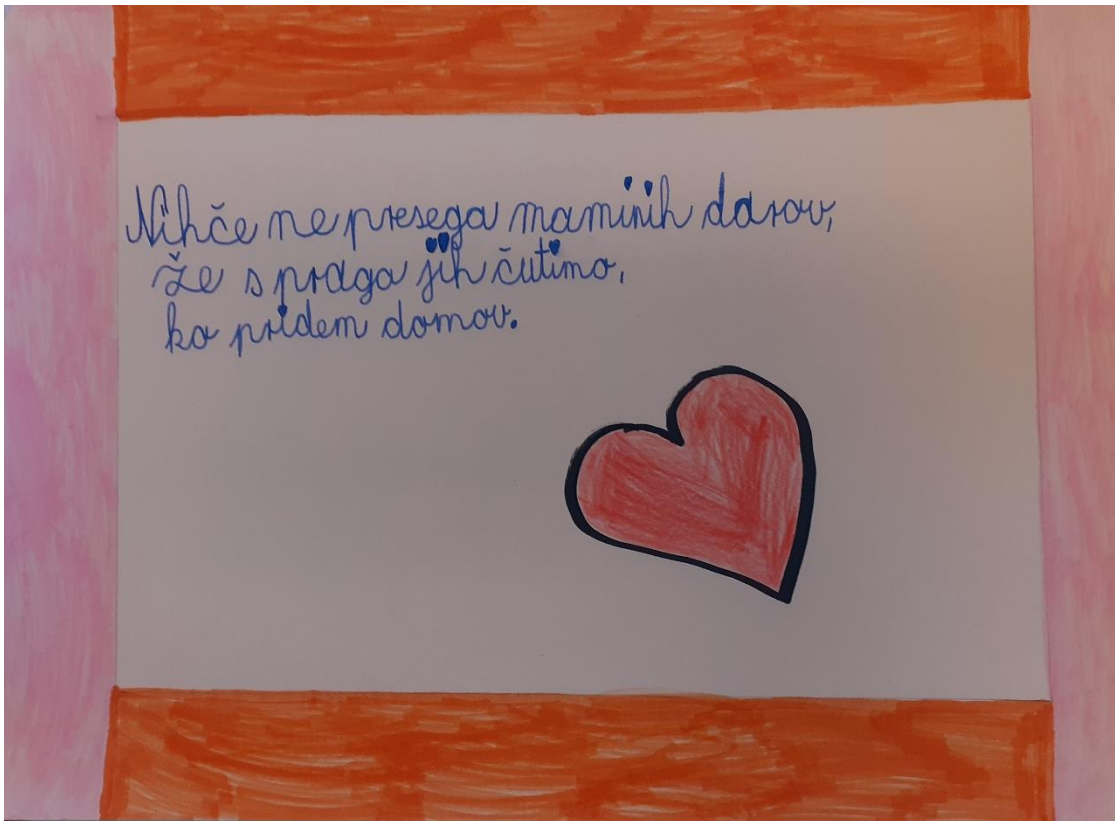 Nihče ne presega maminih darov,
že s praga jih čutimo,
ko pridem domov.